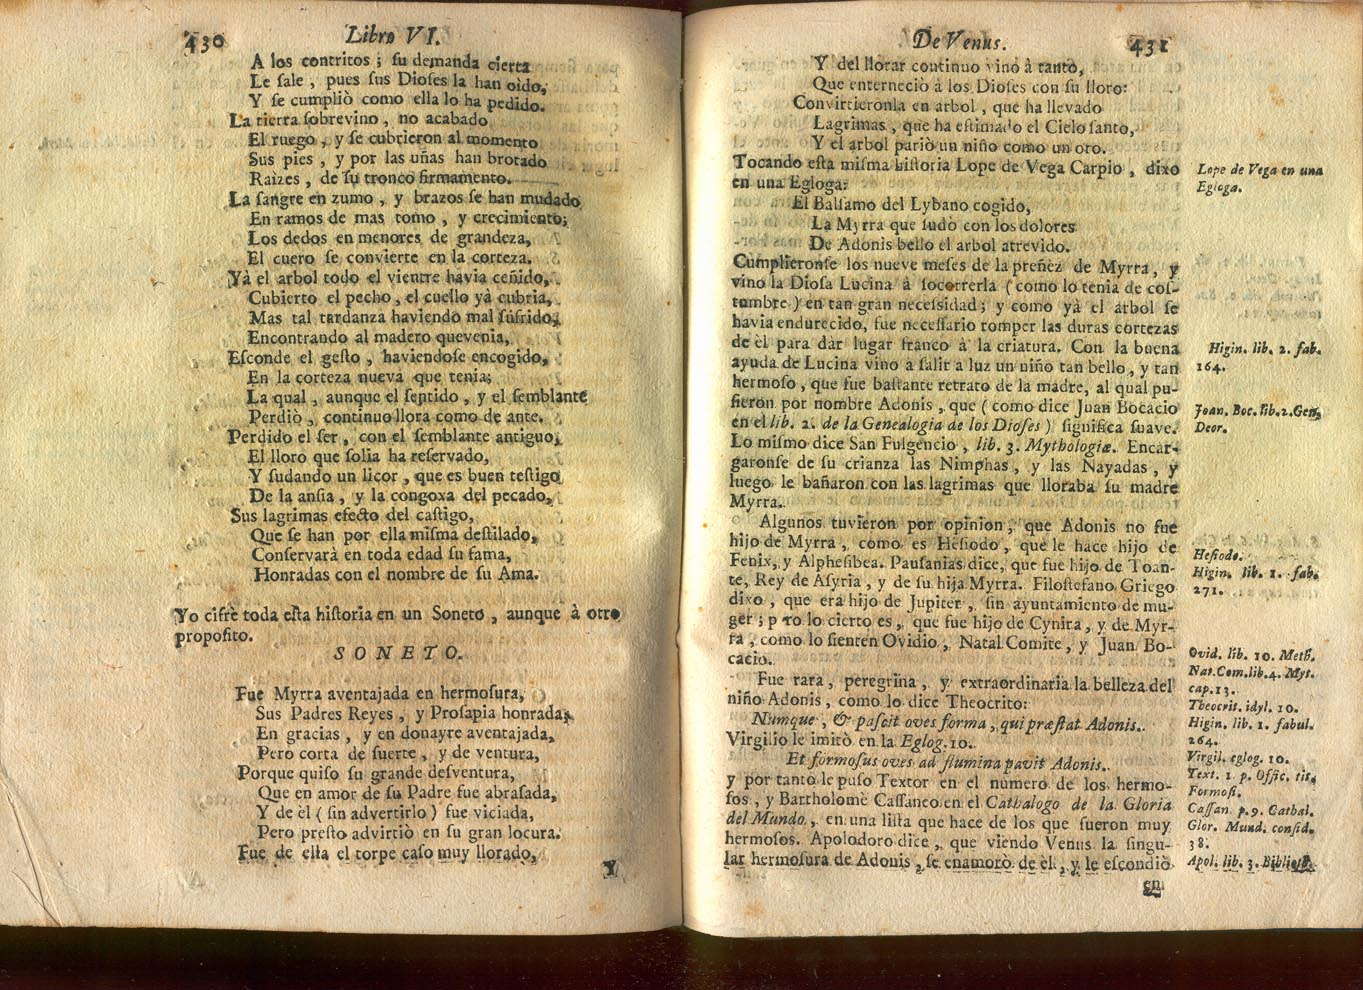 430 Libro VI.
A los contritos ; ſu demanda cierta
Le ſale , pues ſus Dioſes la han oìdo,
Y ſe cumpliò como ella lo ha pedido.
La tierra ſobrevino , no acabado
El ruego , y ſe cubrieron al momento
Sus pies , y por las uñas han brotado
Raìzes , de ſu tronco firmamento.
La ſangre en zumo , y brazos ſe han mudado
En ramos de mas tomo , y crecimiento;
Los dedos en menores de grandeza,
El cuero ſe convierte en la corteza.
Yà el arbol todo el vientre havia ceñido,
Cubierto el pecho , el cuello yà cubria,
Mas tal tardanza haviendo mal ſufrido,
Encontrando al madero quevenia,
Eſconde el geſto , haviendoſe encogido,
En la corteza nueva que tenia;
La qual , aunque el ſentido , y el ſemblante
Perdiò , continuo llora como de ante.
Perdido el ſer , con el ſemblante antiguo,
El lloro que ſolia ha reſervado,
Y ſudando un licor , que es buen teſtigo
De la anſia , y la congoxa del pecado,
Sus lagrimas efecto del caſtigo,
Que ſe han por ella miſma deſtilado,
Conſervarà en toda edad ſu fama,
Honradas con el nombre de ſu Ama.
Yo cifrè toda eſta hiſtoria en un Soneto , aunque à otro
propoſito.
SONETO.
Fue Myrra aventajada en hermoſura,
Sus Padres Reyes , y Proſapia honrada,
En gracias , y en donayre aventajada,
Pero corta de ſuerte , y de ventura,
Porque quiſo ſu grande deſventura,
Que en amor de ſu Padre fue abraſada,
Y de èl ( ſin advertirlo ) fue viciada,
Pero preſto advirtiò en ſu gran locura.
Fue de ella el torpe caſo muy llorado,
Y
De Venus. 431
Y del llorar continuo vino à tanto,
Que enterneciò à los Dioſes con ſu lloro:
Convirtieronla en arbol , que ha llevado
Lagrimas , que ha eſtimado el Cielo ſanto,
Y el arbol pariò un niño como un oro.
Tocando eſta miſma hiſtoria Lope de Vega Carpio , dixo
en una Egloga:
El Balſamo del Lybano cogido,
La Myrra que ſudò con los dolores
De Adonis bello el arbol atrevido.
Cumplieronſe los nueve meſes de la preñèz de Myrra , y
vino la Dioſa Lucina à ſocorrerla ( como lo tenia de coſ-
tumbre ) en tan gran neceſſidad ; y como yà el arbol ſe
havia endurecido, fue neceſſario romper las duras cortezas
de èl para dar lugar franco à la criatura. Con la buena
ayuda de Lucina vino à ſalir a luz un niño tan bello , y tan
hermoſo , que fue baſtante retrato de la madre, al qual pu-
ſieron por nombre Adonis , que ( como dice Juan Bocacio
en el lib. 2. de la Genealogia de los Dioſes ) ſignifica ſuave.
Lo miſmo dice San Fulgencio , lib. 3. Mythologiæ. Encar-
garonſe de ſu crianza las Nimphas , y las Nayadas , y
luego le bañaron con las lagrimas que lloraba ſu madre
Myrra.
Algunos tuvieron por opinion , que Adonis no fue
hijo de Myrra , como es Heſiodo , que le hace hijo de
Fenix, y Alpheſibea. Pauſanias dice, que fue hijo de Toan-
te, Rey de Aſyria , y de ſu hija Myrra. Filoſtefano Griego
dixo , que era hijo de Jupiter , ſin ayuntamiento de mu-
ger ; pero lo cierto es , que fue hijo de Cynira , y de Myr-
ra , como lo ſienten Ovidio , Natal Comite , y Juan Bo-
cacio.
Fue rara , peregrina , y extraordinaria la belleza del
niño Adonis , como lo dice Theocrito:
Numque , & paſcit oves forma , qui præſtat Adonis.
Virgilio le imitò en la Eglog. 10.
Et formoſus oves ad flumina pavit Adonis.
y por tanto le puſo Textor en el numero de los hermo-
ſos , y Bartholomè Caſſaneo en el Cathalogo de la Gloria
del Mundo , en una liſta que hace de los que fueron muy
hermoſos. Apolodoro dice , que viendo Venus la ſingu-
lar hermoſura de Adonis , ſe enamorò de èl , y le eſcondiò
en
Lope de Vega en una
Egloga.
Higin. lib. 2. fab.
164.
Joan. Boc. lib. 2. Gen.
Deor.
Heſiodo.
Higin. lib. 1. fab.
271.
Ovid. lib. 10. Meth.
Nat. Com. lib. 4. Myt.
cap. 13.
Theocrit. idyl. 10.
Higin. lib. 1. fabul.
264.
Virgil. eglog. 10.
Text. 1. p. Offic. tit.
Formoſi.
Caſſan. p. 9. Cathal.
Glor. Mund. conſid.
38.
Apol. lib. 3. Biblioth.